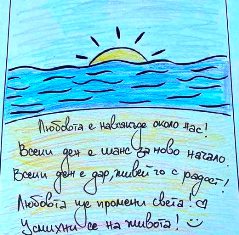 Любовта е навсякъде около нас!
Всеки ден е шанс за ново начало.
Всеки ден е дар, живей го с радост!
Любовта ще промени света! ♡
Усмихни се на живота! ☺